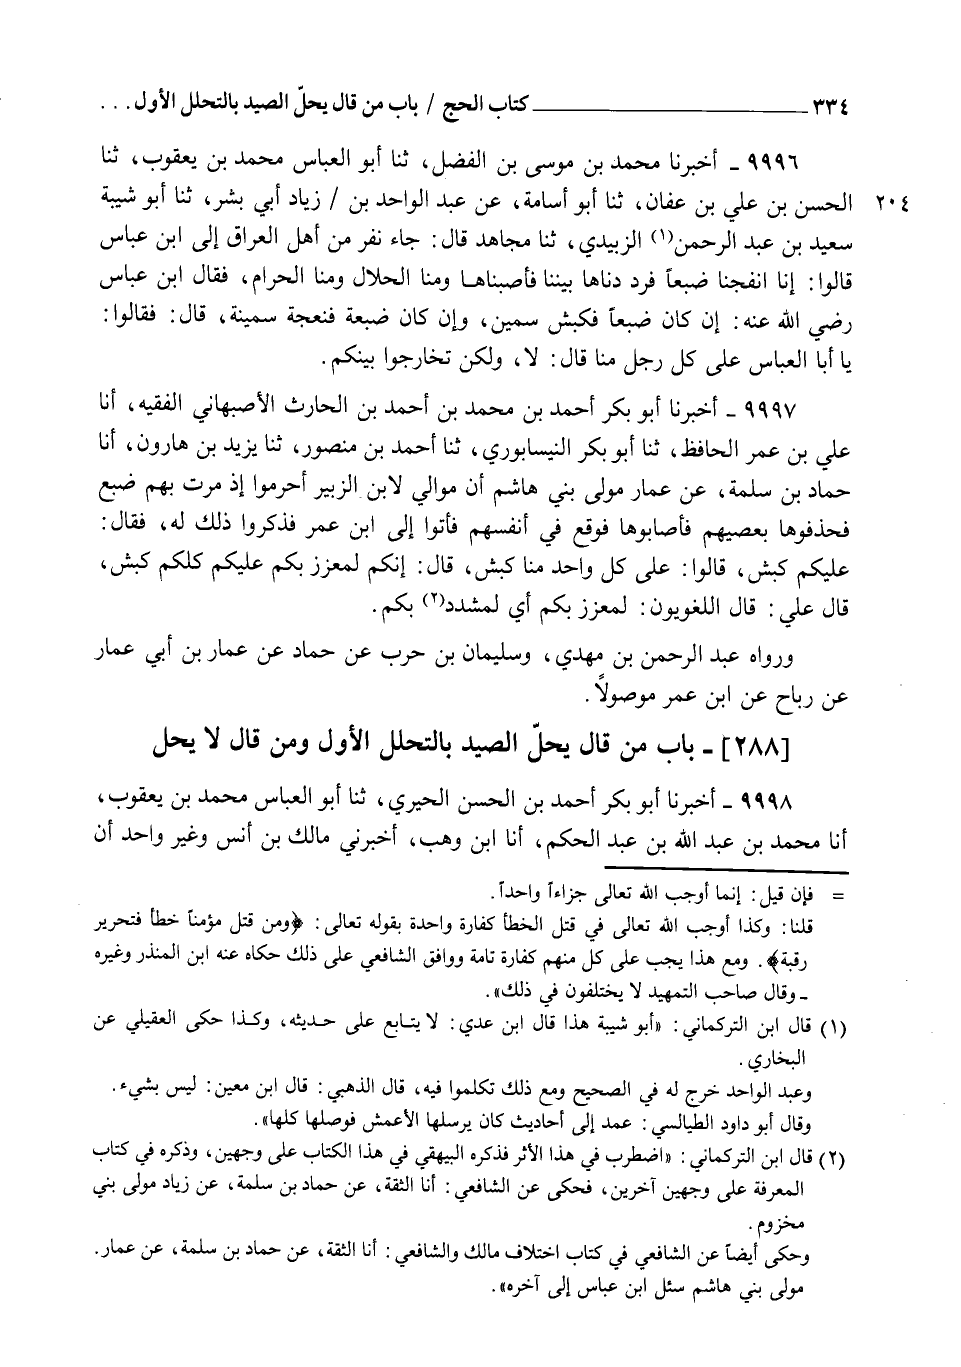 ٣٣٤ ـــــــــ كتاب الحج / باب من قال يحلّ الصيد بالتحلل الأول . . .
٩٩٩٦ ـ أخبرنا محمد بن موسى بن الفضل، ثنا أبو العباس محمد بن يعقوب، ثنا
٢٠٤ الحسن بن علي بن عفان، ثنا أبو أسامة، عن عبد الواحد بن / زياد أبي بشر، ثنا أبو شيبة
سعيد بن عبد الرحمن(١) الزبيدي، ثنا مجاهد قال: جاء نفر من أهل العراق إلى ابن عباس
قالوا: إنا انفجنا ضبعاً فرد دناها بيننا فأصبناهـا ومنا الحلال ومنا الحرام، فقال ابن عباس
رضي الله عنه: إن كان ضبعاً فكبش سمين، وإن كان ضبعة فنعجة سمينة، قال: فقالوا:
يا أبا العباس على كل رجل منا قال: لا، ولكن تخارجوا بينكم.
٩٩٩٧ ـ أخبرنا أبو بكر أحمد بن محمد بن أحمد بن الحارث الأصبهاني الفقيه، أنا
علي بن عمر الحافظ، ثنا أبو بكر النيسابوري، ثنا أحمد بن منصور، ثنا يزيد بن هارون، أنا
حماد بن سلمة، عن عمار مولى بني هاشم أن موالي لابن الزبير أحرموا إذ مرت بهم ضبع
فحذفوها بعصيهم فأصابوها فوقع في أنفسهم فأتوا إلى ابن عمر فذكروا ذلك له، فقال:
عليكم كبش، قالوا: على كل واحد منا كبش، قال: إنكم لمعزز بكم عليكم كلكم كبش،
قال علي: قال اللغويون: لمعزز بكم أي لمشدد(٢) بكم.
ورواه عبد الرحمن بن مهدي، وسليمان بن حرب عن حماد عن عمار بن أبي عمار
عن رباح عن ابن عمر موصولاً.
[٢٨٨] ـ باب من قال يحلّ الصيد بالتحلل الأول ومن قال لا يحل
٩٩٩٨ ـ أخبرنا أبو بكر أحمد بن الحسن الحيري، ثنا أبو العباس محمد بن يعقوب،
أنا محمد بن عبد الله بن عبد الحكم، أنا ابن وهب، أخبرني مالك بن أنس وغير واحد أن
= فإن قيل: إنما أوجب الله تعالى جزاءاً واحداً.
قلنا: وكذا أوجب الله تعالى في قتل الخطأ كفارة واحدة بقوله تعالى: ﴿ومن قتل مؤمناً خطأ فتحرير
رقبة﴾. ومع هذا يجب على كل منهم كفارة تامة ووافق الشافعي على ذلك حكاه عنه ابن المنذر وغيره
ـ وقال صاحب التمهيد لا يختلفون في ذلك».
(١) قال ابن التركماني: «أبو شيبة هذا قال ابن عدي: لا يتـابع على حـديثه، وكـذا حكى العقيلي عن
البخاري.
وعبد الواحد خرج له في الصحيح ومع ذلك تكلموا فيه، قال الذهبي: قال ابن معين: ليس بشيء.
وقال أبو داود الطيالسي: عمد إلى أحاديث كان يرسلها الأعمش فوصلها كلها».
(٢) قال ابن التركماني: «اضطرب في هذا الأثر فذكره البيهقي في هذا الكتاب على وجهين، وذكره في كتاب
المعرفة على وجهين آخرين، فحكى عن الشافعي: أنا الثقة، عن حماد بن سلمة، عن زياد مولى بني
مخزوم.
وحكى أيضاً عن الشافعي في كتاب اختلاف مالك والشافعي: أنا الثقة، عن حماد بن سلمة، عن عمار.
مولى بني هاشم سئل ابن عباس إلى آخره».